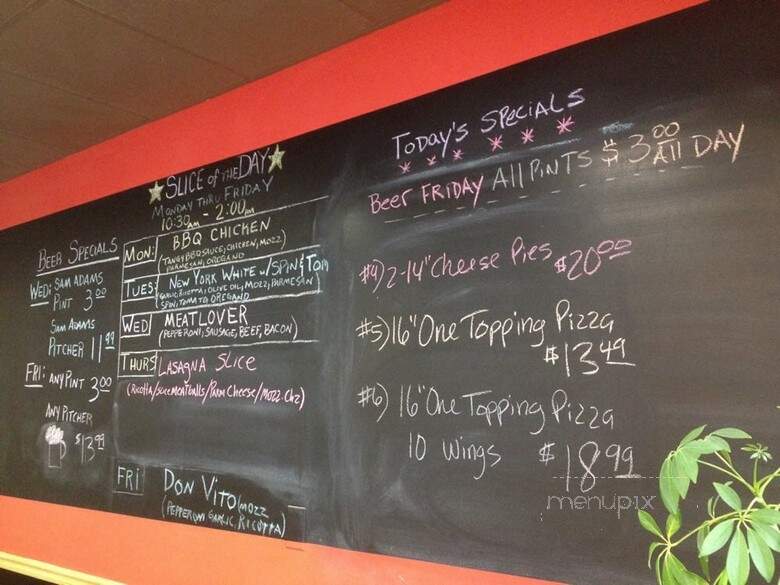 BEER SPECIALS
WED: SAM ADAMS
PINT 3.00
SAM ADAMS
PITCHER 11.99
FRI: ANY PINT 3.00
ANY PITCHER
$13.99
SLICE OF THE DAY
MONDAY THRU FRIDAY
10:30am - 2:00pm
MON: BBQ CHICKEN
(TANGY BBQ SAUCE, CHICKEN, MOZZ
PARMESAN, OREGANO
TUES: NEW YORK WHITE w/ SPIN & TOM
GARLIC, RICOTTA, OLIVE OIL, MOZZ, PARMESAN
SPIN, TOMATO OREGANO
WED MEATLOVER
(PEPPERONI, SAUSAGE, BEEF, BACON)
THURS LASAGNA SLICE
(Ricotta/Slice MEATballs/PARM CHEESE/MOZZ. Chz)
FRI DON VITO
(PEPPERONI GARLIC, RICOTTA) MOZZ
TODAY'S SPECIALS
BEER FRIDAY All PINTS $3.00 All DAY
#4) 2-14" Cheese Pies $20.00
#5) 16" One Topping Pizza
$13.49
#6) 16" One Topping Pizza
10 Wings $18.99
menupix